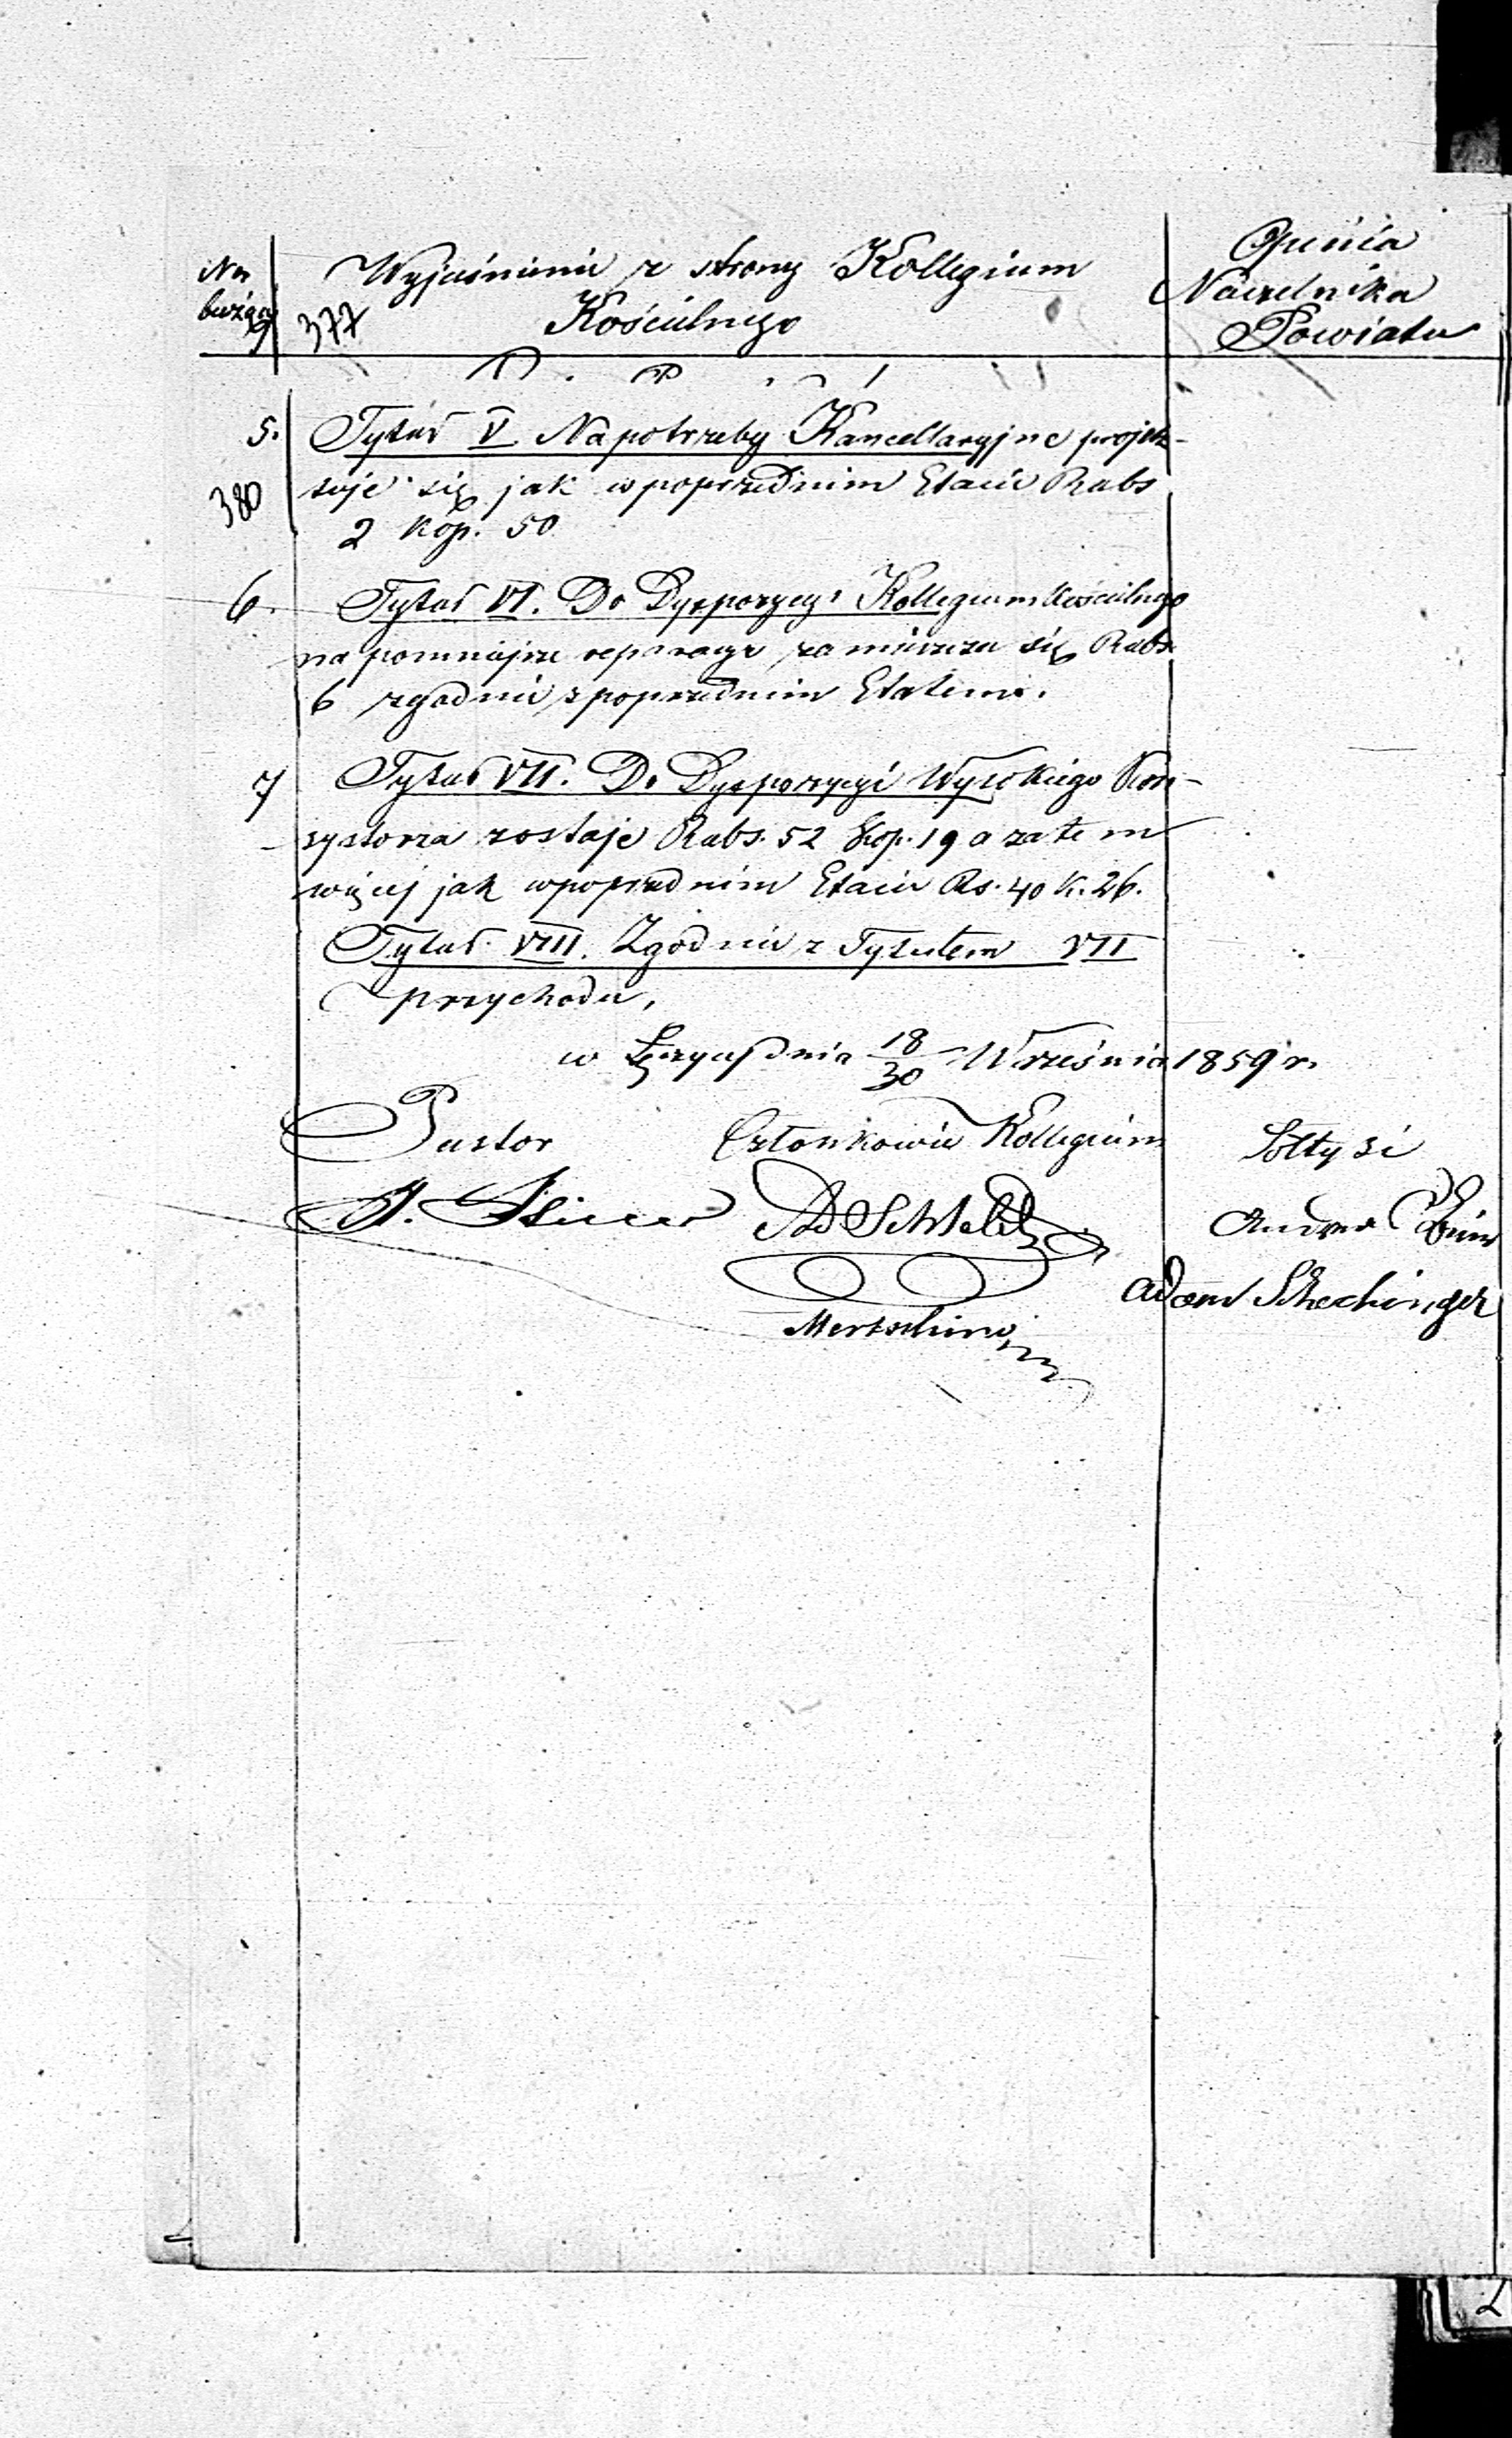 Nr
bieżący
377
Wyjaśnienie z strony Kollegium
Kościelnego
Opinia
Naczelnika
Powiatu
5. Tytuł V Na potrzeby Kancellaryjne projek-
380 tuje się jak w poprzednim Etacie Rubs
2 kop. 50
6. Tytuł VI. Do Dyspozycyi Kollegium Kościelnego
na pomniejsze reparacye zamieszcza się Rubs.
6 zgodnie z poprzednim Etatem.
7 Tytuł VII. Do Dyspozycyi Wysokiego Kon-
systorza zostaje Rubs. 52 Kop. 19 a zatem
więcej jak w poprzednim Etacie Rs. 40 k. 26.
Tytuł VIII. Zgodnie z Tytułem VII
przychodu,
w dnia 18/30 Września 1859 r.
Pastor Członkowie Kollegium Sołtysi
Adam